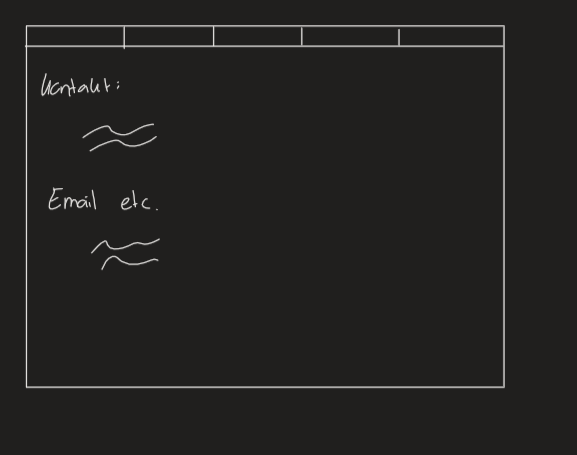 Kontakt:
Email etc.